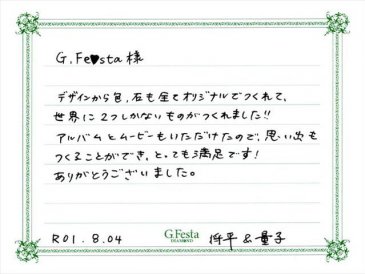 G.Fe♥sta 様
デザインから色、石も全てオリジナルでつくれて、
世界に2つしかないものがつくれました!!
アルバムとムービーもいただけたので、思い出も
つくることができ、とっても満足です!
ありがとうございました。
G.Festa
DIAMOND
R01.8.04
将平&量子